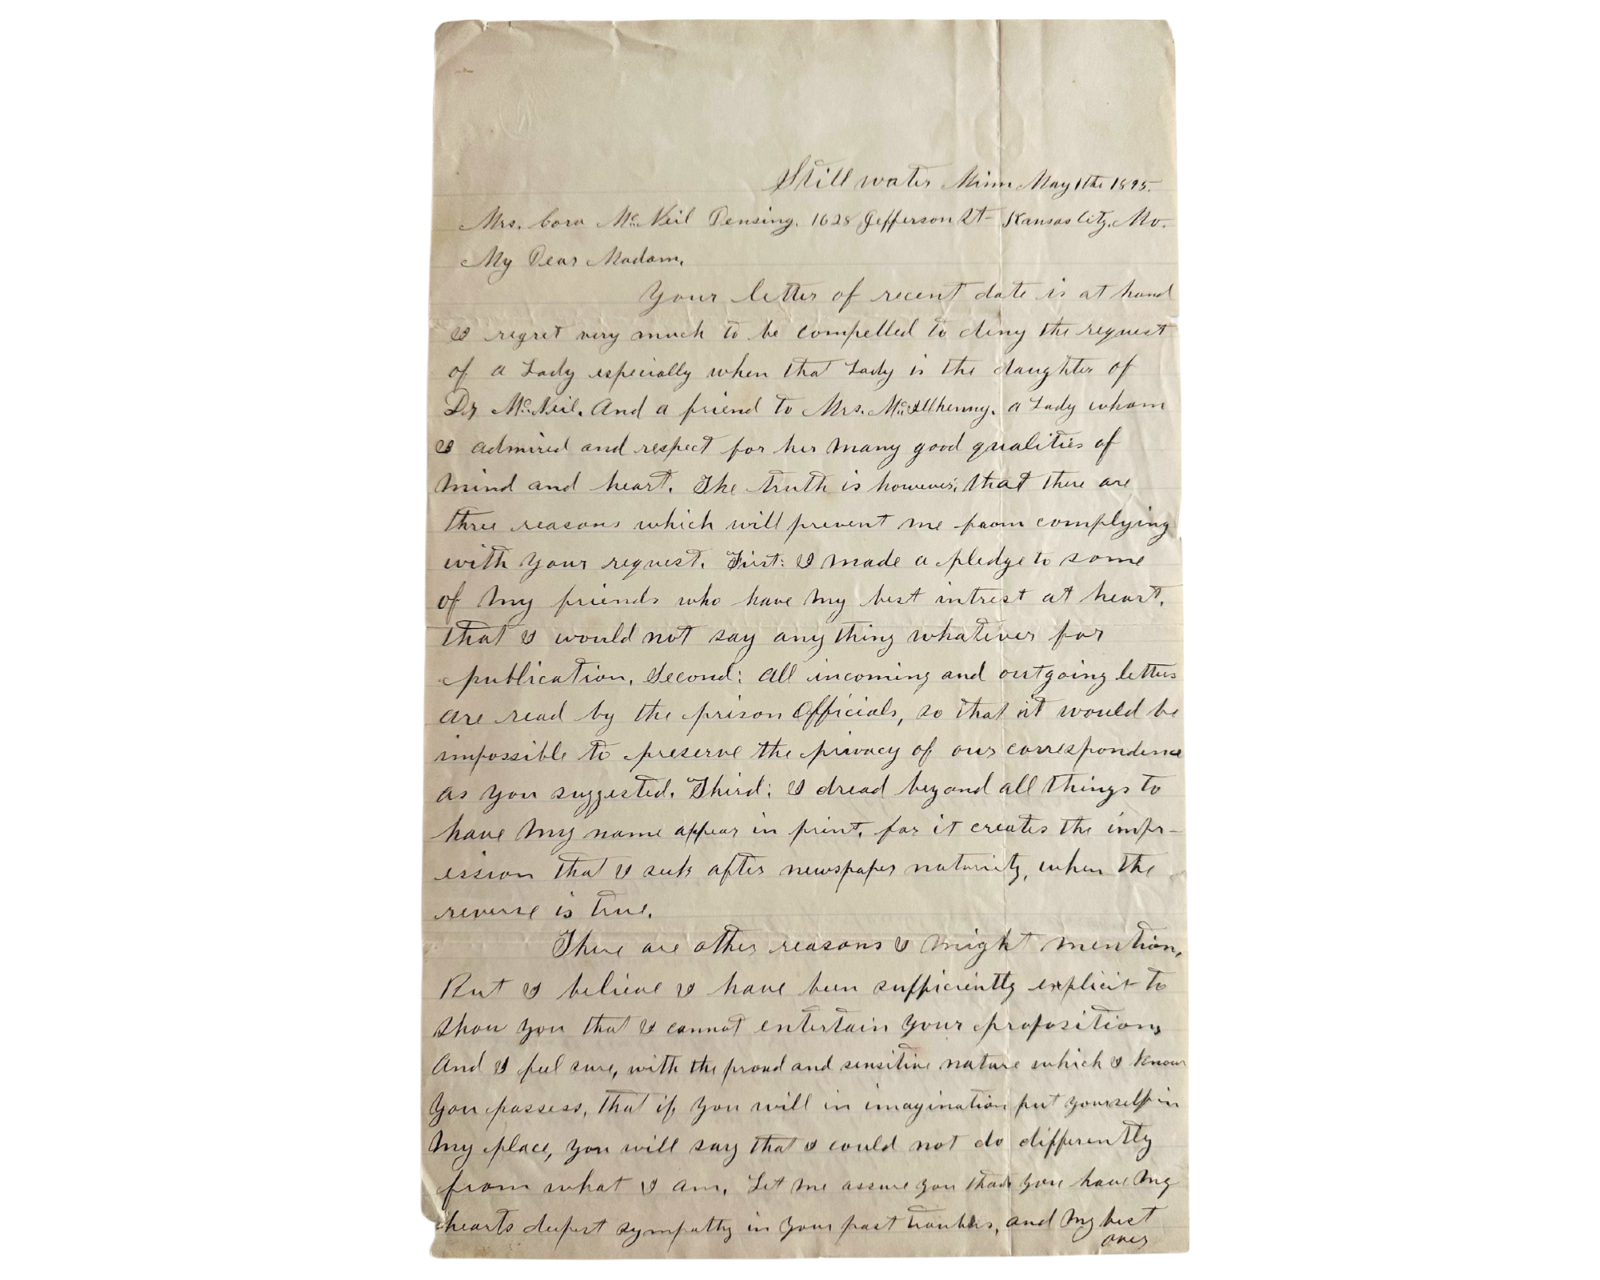 Still water Minn May 1the 1895.
Mrs. Cora McNeil Deming. 1628 Jefferson St- Kansas City, Mo.
My Dear Madam.
Your letter of recent date is at hand
I regret very much to be compelled to deny the request
of a Lady especially when that Lady is the daughter of
Dr McNeil. And a friend to Mrs. McIlhenny. a Lady whom
I admired and respect for her many good qualities of
mind and heart. The truth is however, that there are
three reasons which will prevent me from complying
with your request. First: I made a pledge to some
of my friends who have my best intrest at heart,
that I would not say any thing whatever for
publication, Second: all incoming and outgoing letters
are read by the prison Officials, so that it would be
impossible to preserve the privacy of our correspondence
as you suggested. Third: I dread beyond all things to
have my name appear in print, for it creates the impr-
ession that I seek after newspaper notoriety, when the
reverse is true.
There are other reasons I might mention,
But I believe I have been sufficiently explicit to
show you that I cannot entertain your proposition,
And I feel sure, with the proud and sensitive nature which I know
you possess, that if you will in imagination put yourself in
my place, you will say that I could not do differently
from what I am. Let me assure you that you have my
hearts deepest sympathy in your past troubles, and my best
over